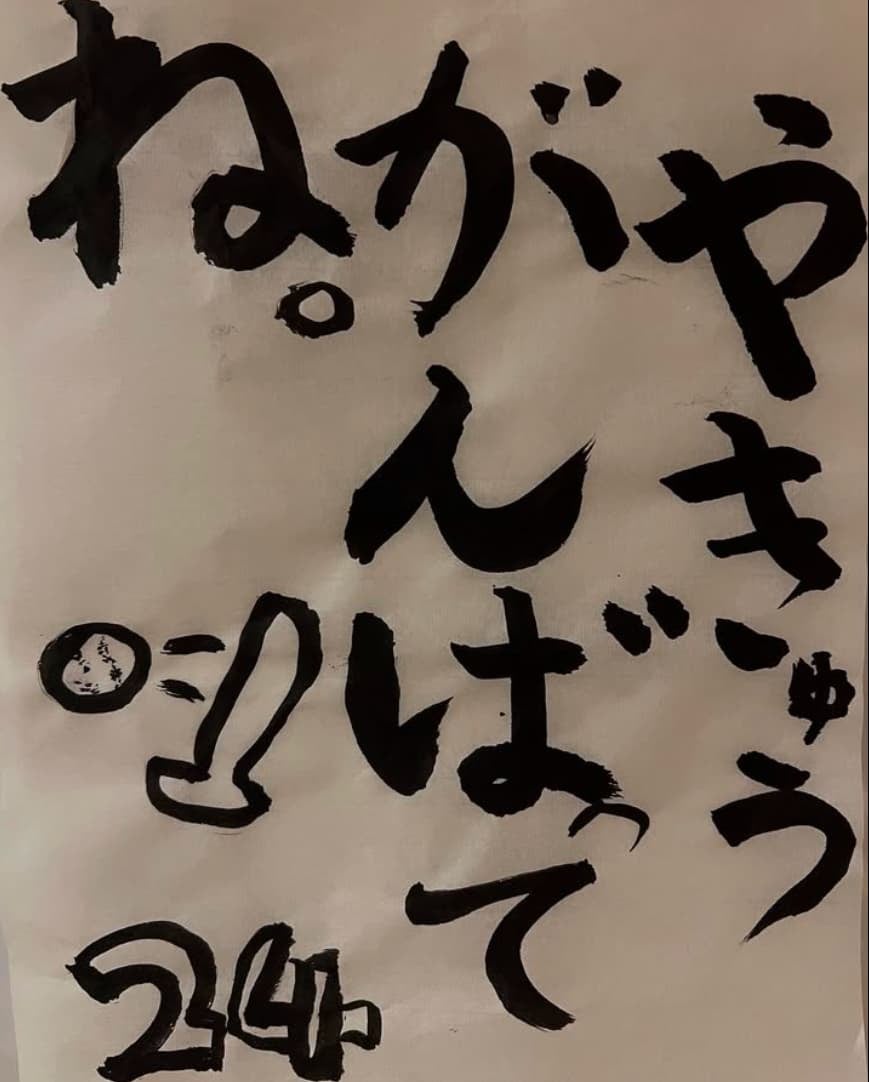 やきゅう
がんばって
ね。
24